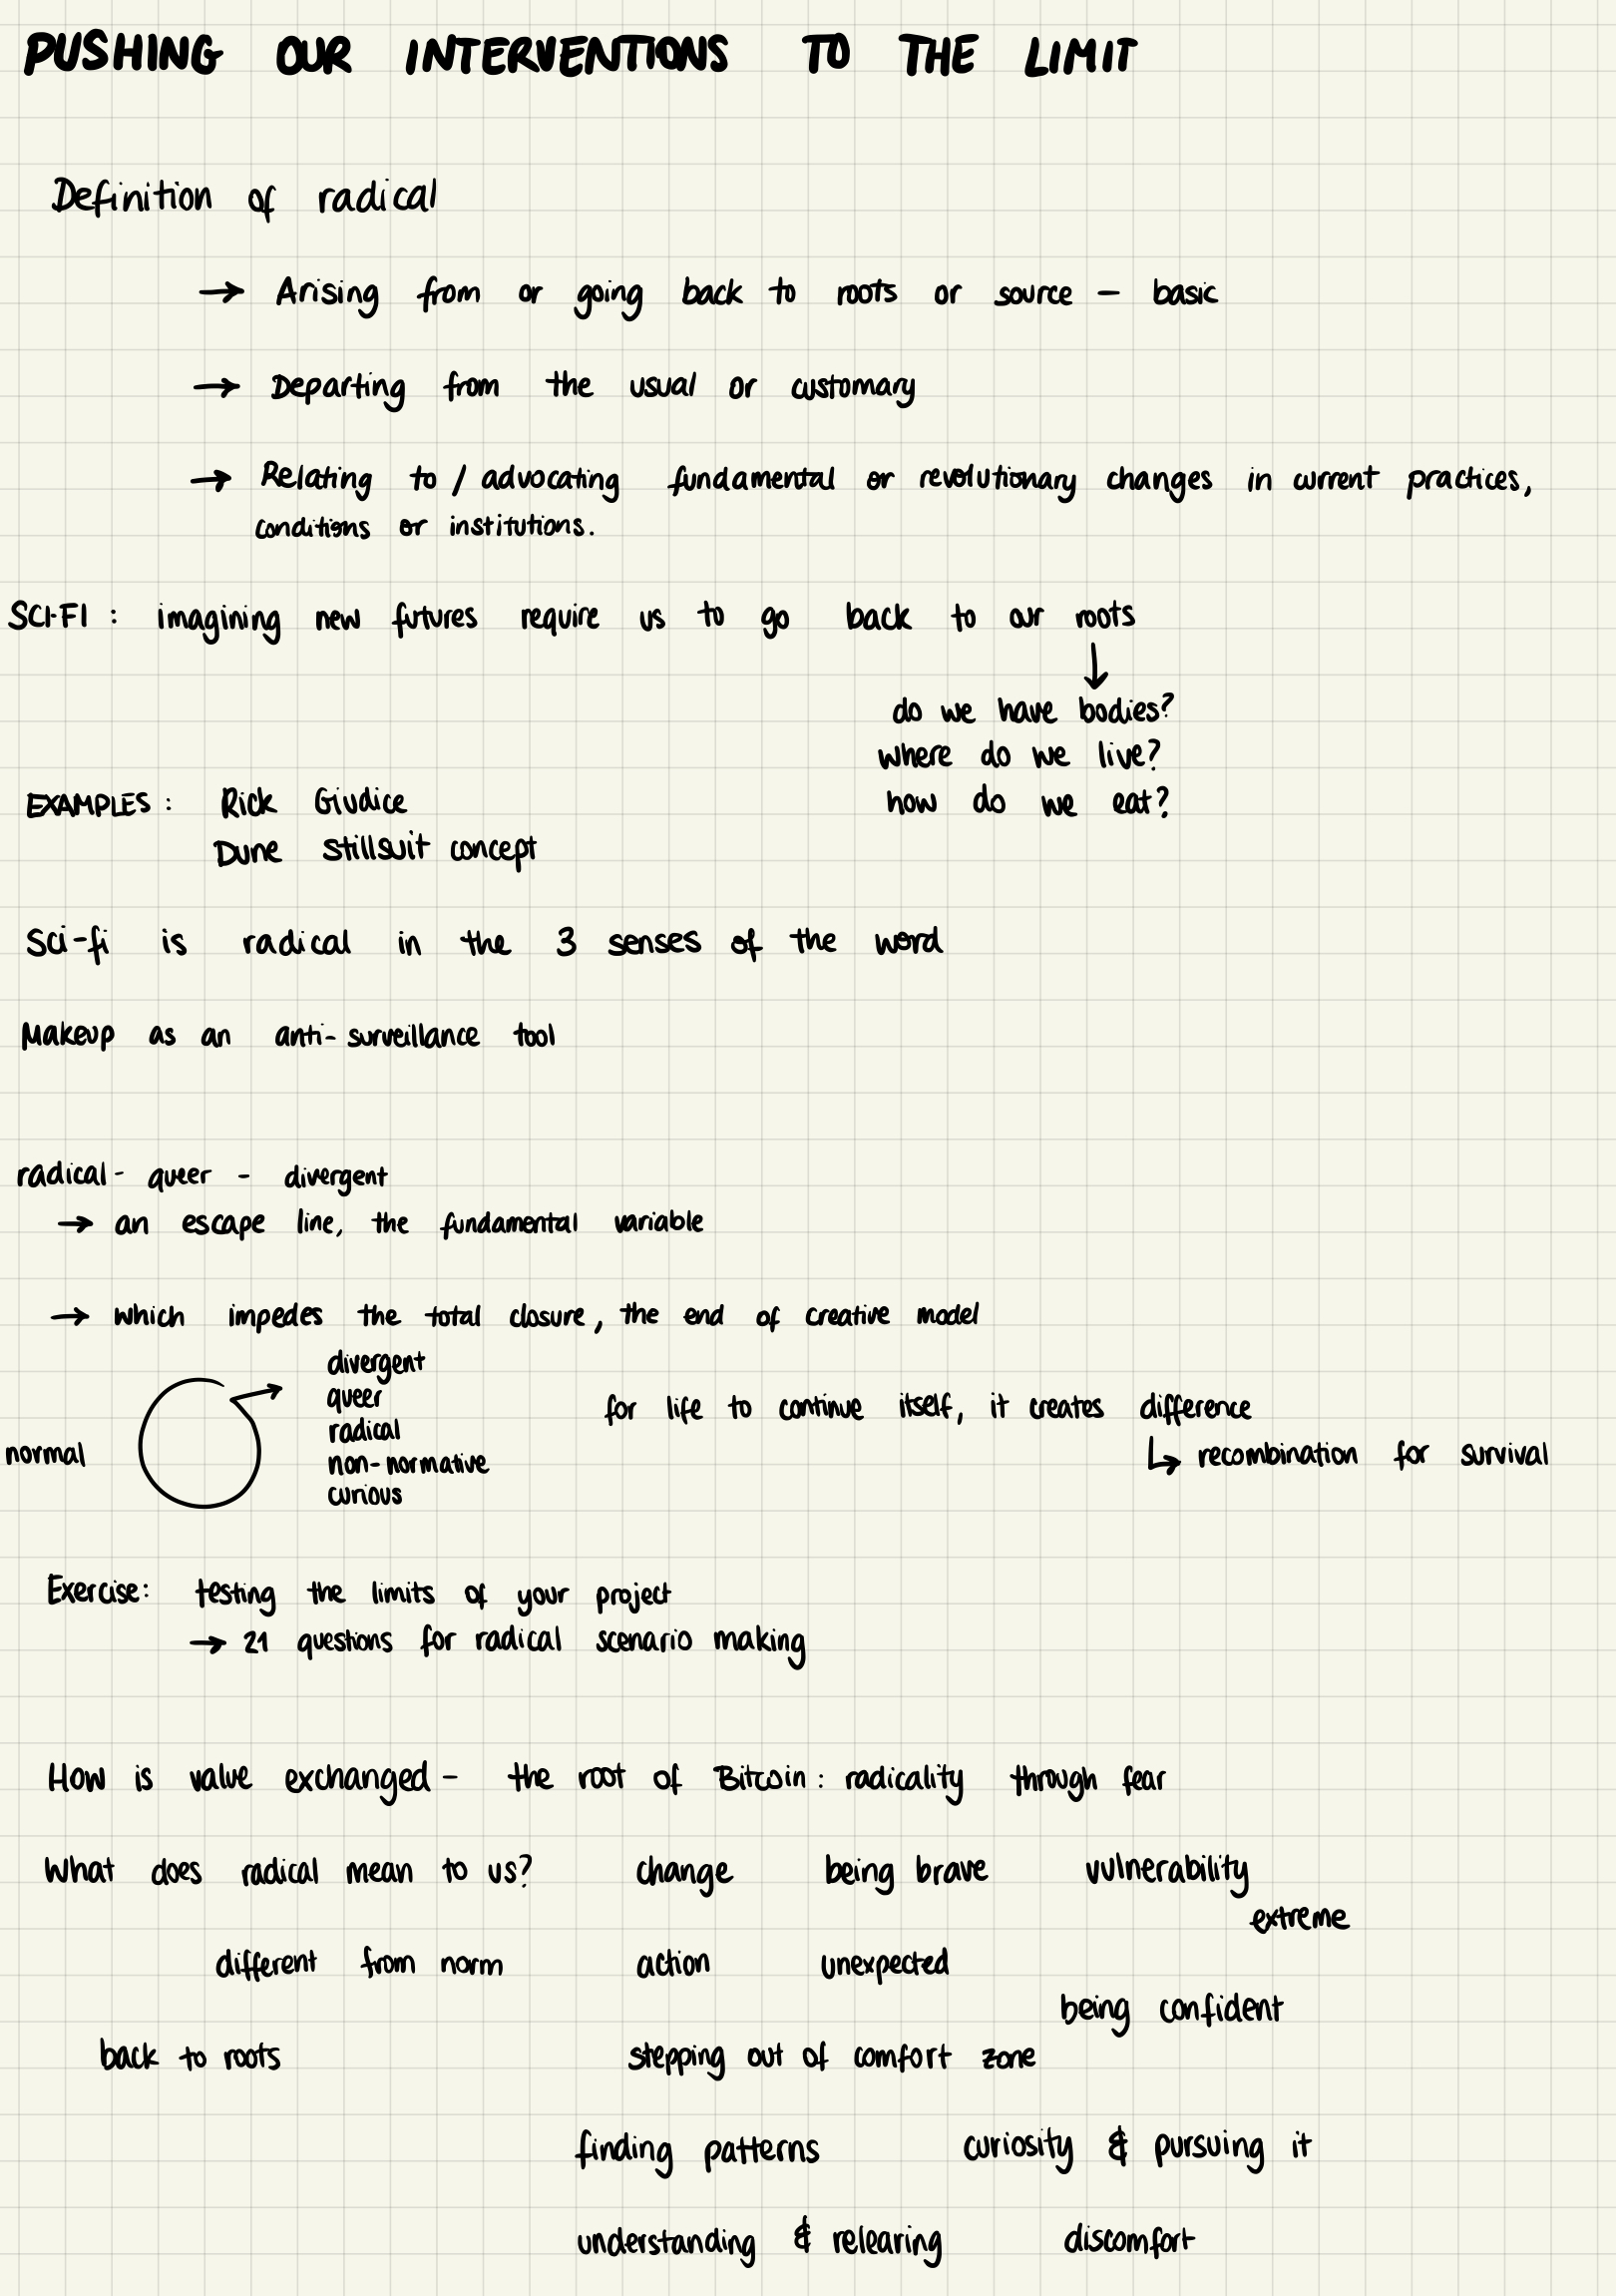 PUSHING OUR INTERVENTIONS TO THE LIMIT
Definition of radical
→ Arising from or going back to roots or source – basic
→ Departing from the usual or customary
→ Relating to / advocating fundamental or revolutionary changes in current practices,
conditions or institutions.
SCI-FI : imagining new futures require us to go back to our roots
↓
do we have bodies?
where do we live?
how do we eat?
EXAMPLES : Rick Giudice
Dune stillsuit concept
Sci-fi is radical in the 3 senses of the word
Makeup as an anti-surveillance tool
radical - queer - divergent
→ an escape line, the fundamental variable
→ which impedes the total closure, the end of creative model
normal
divergent
queer
radical
non-normative
curious
for life to continue itself, it creates difference
↳ recombination for survival
Exercise: testing the limits of your project
→ 21 questions for radical scenario making
How is value exchanged – the root of Bitcoin : radicality through fear
What does radical mean to us? change being brave vulnerability
extreme
different from norm action unexpected
being confident
back to roots stepping out of comfort zone
finding patterns curiosity & pursuing it
understanding & relearing discomfort